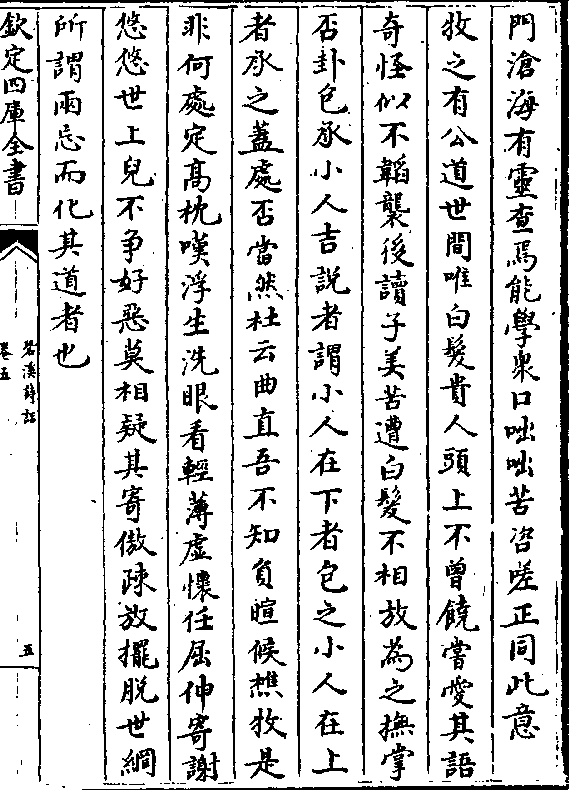 門滄海有靈查焉能學衆口咄咄苦咨嗟正同此意
牧之有公道世間唯白髮貴人頭上不曾饒嘗愛其語
奇怪似不韜襲後讀子美苦遭白髮不相放為之撫掌
否卦包承小人吉説者謂小人在下者包之小人在上
者承之蓋處否當然杜云曲直吾不知負暄候樵牧是
非何處定髙枕嘆浮生洗眼看輕薄虚懷任屈伸寄謝
悠悠世上兒不争好惡莫相疑其寄傲疎放擺脱世網
所謂兩忘而化其道者也
欽定四庫全書
䂬溪詩話
卷五
五